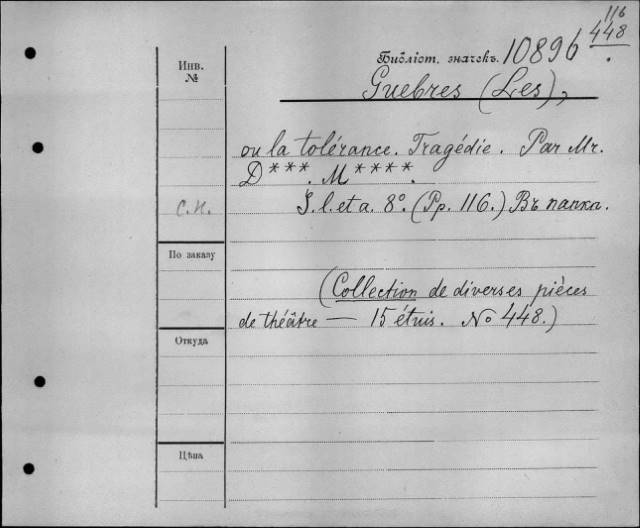 116
448
Инв. №
Библіот. значекъ. 10896
Guebres (Les),
ou la tolérance. Tragédie. Par Mr.
D***. M****.
С.Н. S. l. et a. 8º. (Pp. 116.) Въ папкѣ.
По заказу
(Collection de diverses pièces
de théâtre — 15 étuis. No 448.)
Откуда
Цѣна